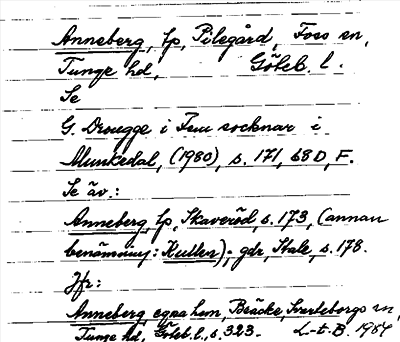 Anneberg, lp, Pilegård, Foss sn,
Tunge hd, Göteb. l.
Se
G. Drougge i Fem socknar i
Munkedal, (1980), s. 171, 68 D, F.
Se äv.:
Anneberg, lp, Skaveröd, s. 173, (annan
benämning: Kullen); gdr, Stale, s. 178.
Jfr:
Anneberg, egna hem, Bräcke, Svarteborgs sn,
Tunge hd, Göteb. l., s. 323. L-t-B. 1984